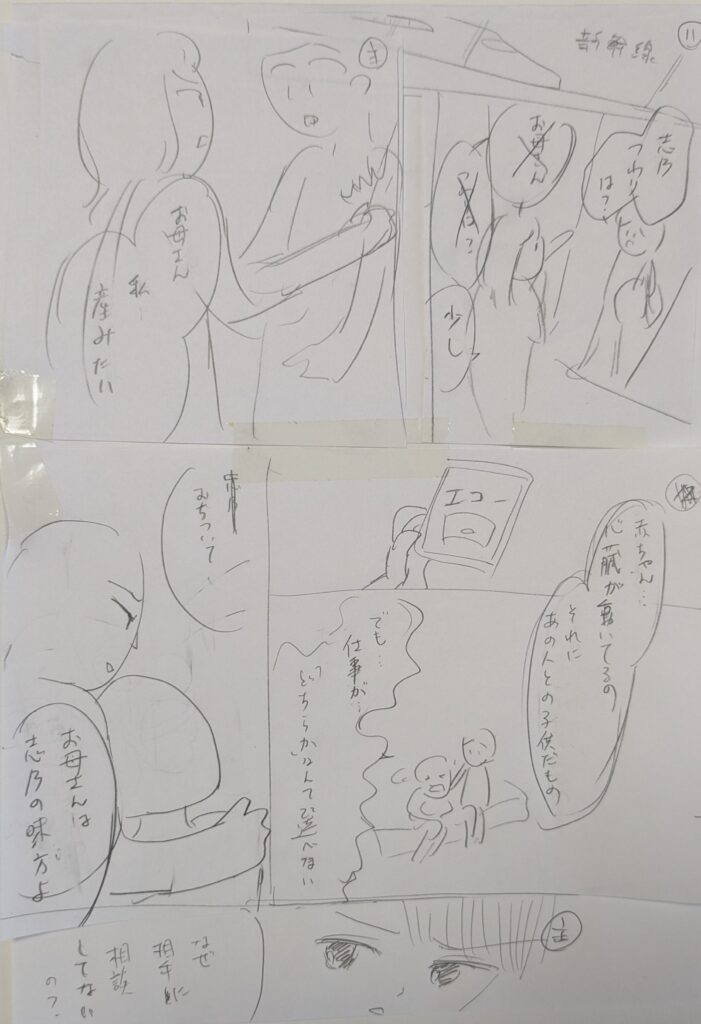 11
新幹線
志乃
つわりは?
お母さん
少し
母
お母さん
私…
産みたい
エコー
赤ちゃん…
心臓が動いてるの
それに
あの人との子供だもの
でも…
仕事が…
どちらかなんて選べない
おちついて
お母さんは
志乃の味方よ
なぜ
相手に
相談
してない
の?